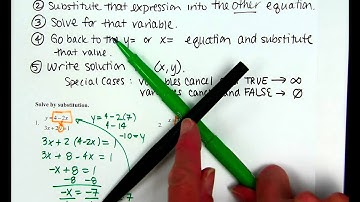 ② Substitute that expression into the other equation.
③ Solve for that variable.
④ Go back to the y= or x= equation and substitute
that value.
⑤ Write solution (x, y).
Special Cases: variables cancel and TRUE → ∞
variables cancel and FALSE → ∅
Solve by substitution.
1. y = 4-2x
3x + 2y = 1
y = 4-2(7)
4-14
-10 = y
2.
3x + 2(4-2x) = 1
3x + 8 - 4x = 1
-x + 8 = 1
-8 -8
-x = -7